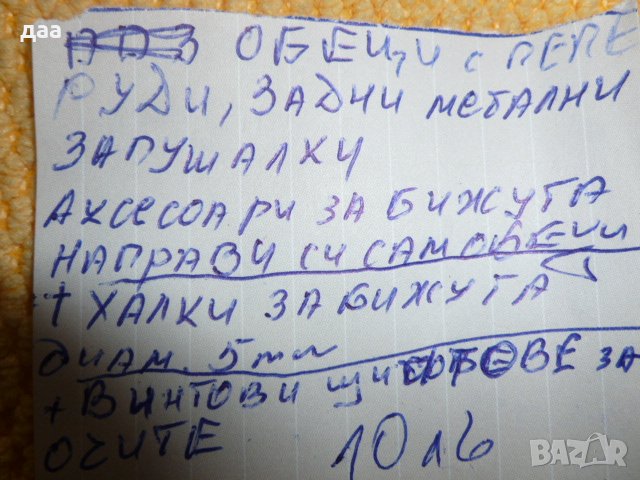 даа
ОБЕЦИ С ПЕПЕ
РУДИ, ЗАДНИ МЕТАЛНИ
ЗАПУШАЛКИ
АКСЕСОАРИ ЗА БИЖУТА
НАПРАВИ СИ САМ ОБЕЦИ
+ ХАЛКИ ЗА БИЖУТА
ДИАМ. 5mm
+ ВИНТОВИ ЩИФТОВЕ ЗА
ОЧИТЕ 10 лв
BAZAR